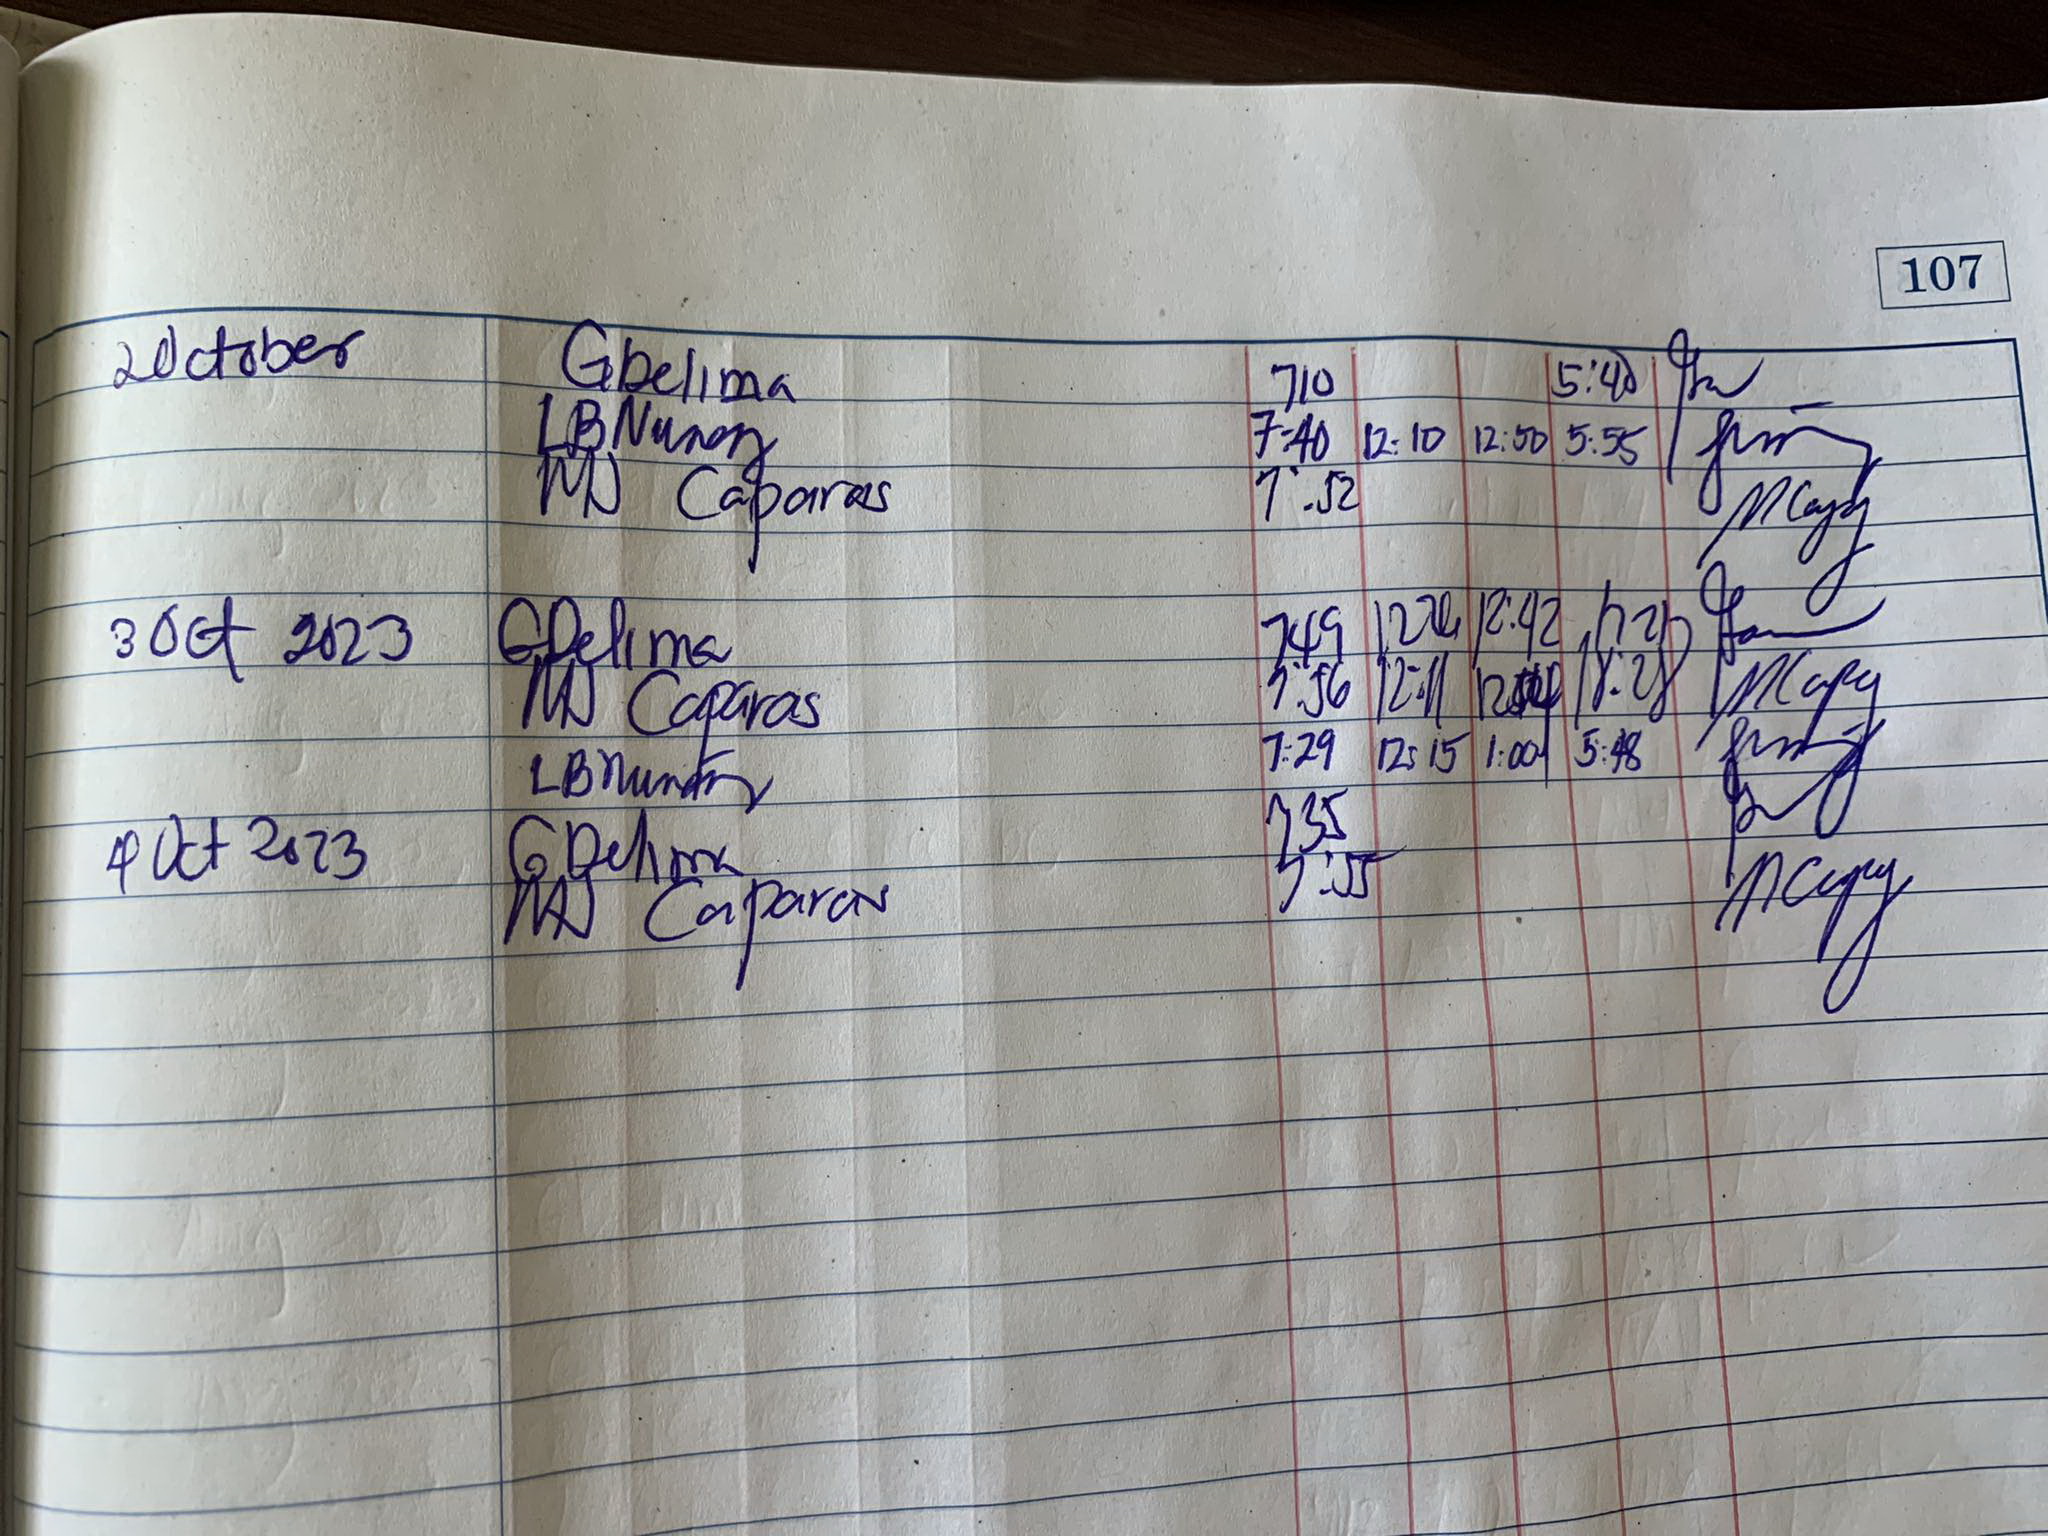 107
2 October GDelima 710 5:40
LBNunez 7:40 12:10 12:50 5:55
Caparas 7:52
3 Oct 2023 GDelima 749 12:42
Caparas 7:56 12:11 18:28
LBNunez 7:29 12:15 1:00 5:48
4 Oct 2023 GDelima 735
Caparas 7:55